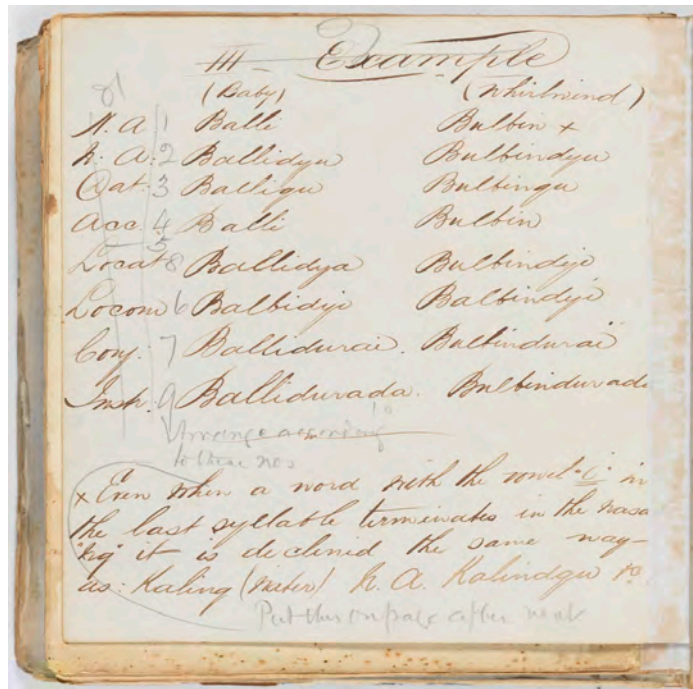 III - Example
(Baby) (Whirlwind)
N. A 1 Balli Bulbin x
N. A. 2 Ballidyu Bulbindyu
Dat. 3 Balligu Bulbingu
Acc. 4 Balli Bulbin
5
Locat 8 Ballidya Bulbindyi
Locom 6 Balbidyi Balbindyi
Conj. 7 Ballidurai. Bulbindurai
Instr. 9 Ballidurada. Bulbindurada
Arrange according
to these nos
x Even when a word with the vowel "i" in
the last syllable terminates in the nasa
"ng" it is declined the same way-
as: Kaling (water) N. A. Kalindyu &c
Put this on page after next